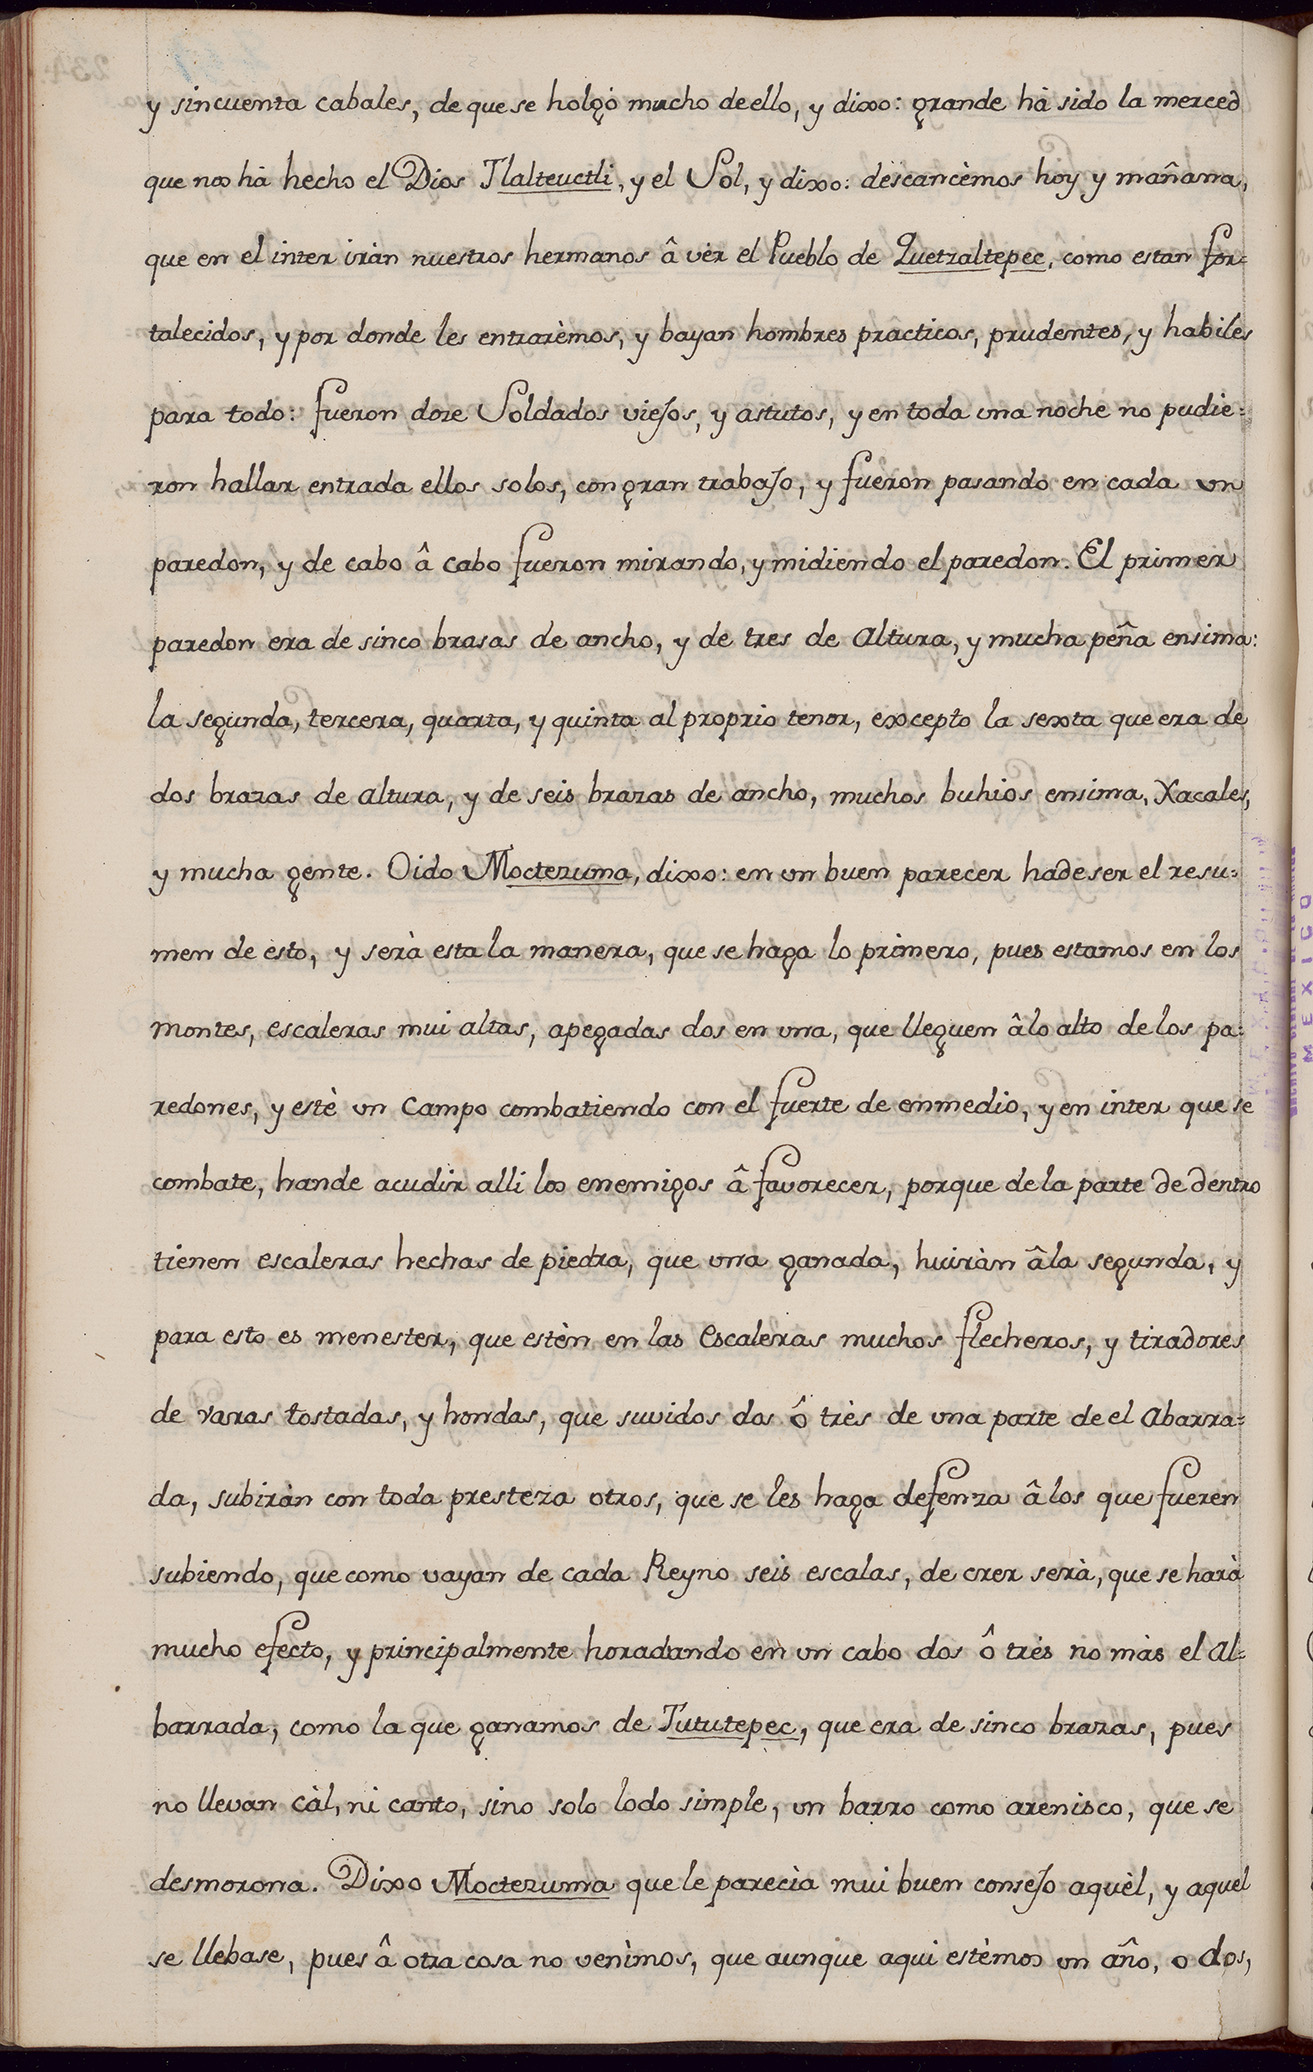 y sincuenta cabales, de que se holgó mucho de ello, y dixo: grande hà sido la merced
que nos hà hecho el Dios Tlalteuctli, y el Sol, y dixo: descancèmos hoy y mañana,
que en el inter iràn nuestros hermanos â vèr el Pueblo de Quetzaltepec, como estan for=
talecidos, y por donde les entrarèmos, y bayan hombres pràcticos, prudentes, y habiles
para todo: fueron doze Soldados viejos, y astutos, y en toda una noche no pudie=
ron hallar entrada ellos solos, con gran trabajo, y fueron pasando en cada un
paredon, y de cabo â cabo fueron mirando, y midiendo el paredon. El primer
paredon era de sinco brasas de ancho, y de tres de altura, y mucha peña ensima:
la segunda, tercera, quarta, y quinta al proprio tenor, excepto la sexta que era de
dos brazas de altura, y de seis brazas de ancho, muchos buhios ensima, Xacales,
y mucha gente. Oido Moctezuma, dixo: en un buen parecer hade ser el resu=
men de esto, y serà esta la manera, que se haga lo primero, pues estamos en los
montes, escaleras mui altas, apegadas dos en una, que lleguen âlo alto de los pa=
redones, y estè un campo combatiendo con el fuerte de enmedio, y en inter que se
combate, hande acudir alli los enemigos â favorecer, porque de la parte de dentro
tienen escaleras hechas de piedra, que una ganada, huiràn âla segunda, y
para esto es menester, que estèn en las escaleras muchos flecheros, y tiradores
de varas tostadas, y hondas, que suvidos dos ô très de una parte de el abarra=
da, subiràn con toda presteza otros, que se les haga defenza â los que fueren
subiendo, que como vayan de cada Reyno seis escalas, de crer serà, que se harà
mucho efecto, y principalmente horadando en un cabo dos ô très no màs el al=
barrada, como la que ganamos de Tututepec, que era de sinco brazas, pues
no llevan càl, ni canto, sino solo lodo simple, un barro como arenisco, que se
desmorona. Dixo Moctezuma que le parecìa mui buen consejo aquèl, y aquel
se llebase, pues â otra cosa no venìmos, que aunque aqui estèmos un año, o dos,
MEXICO